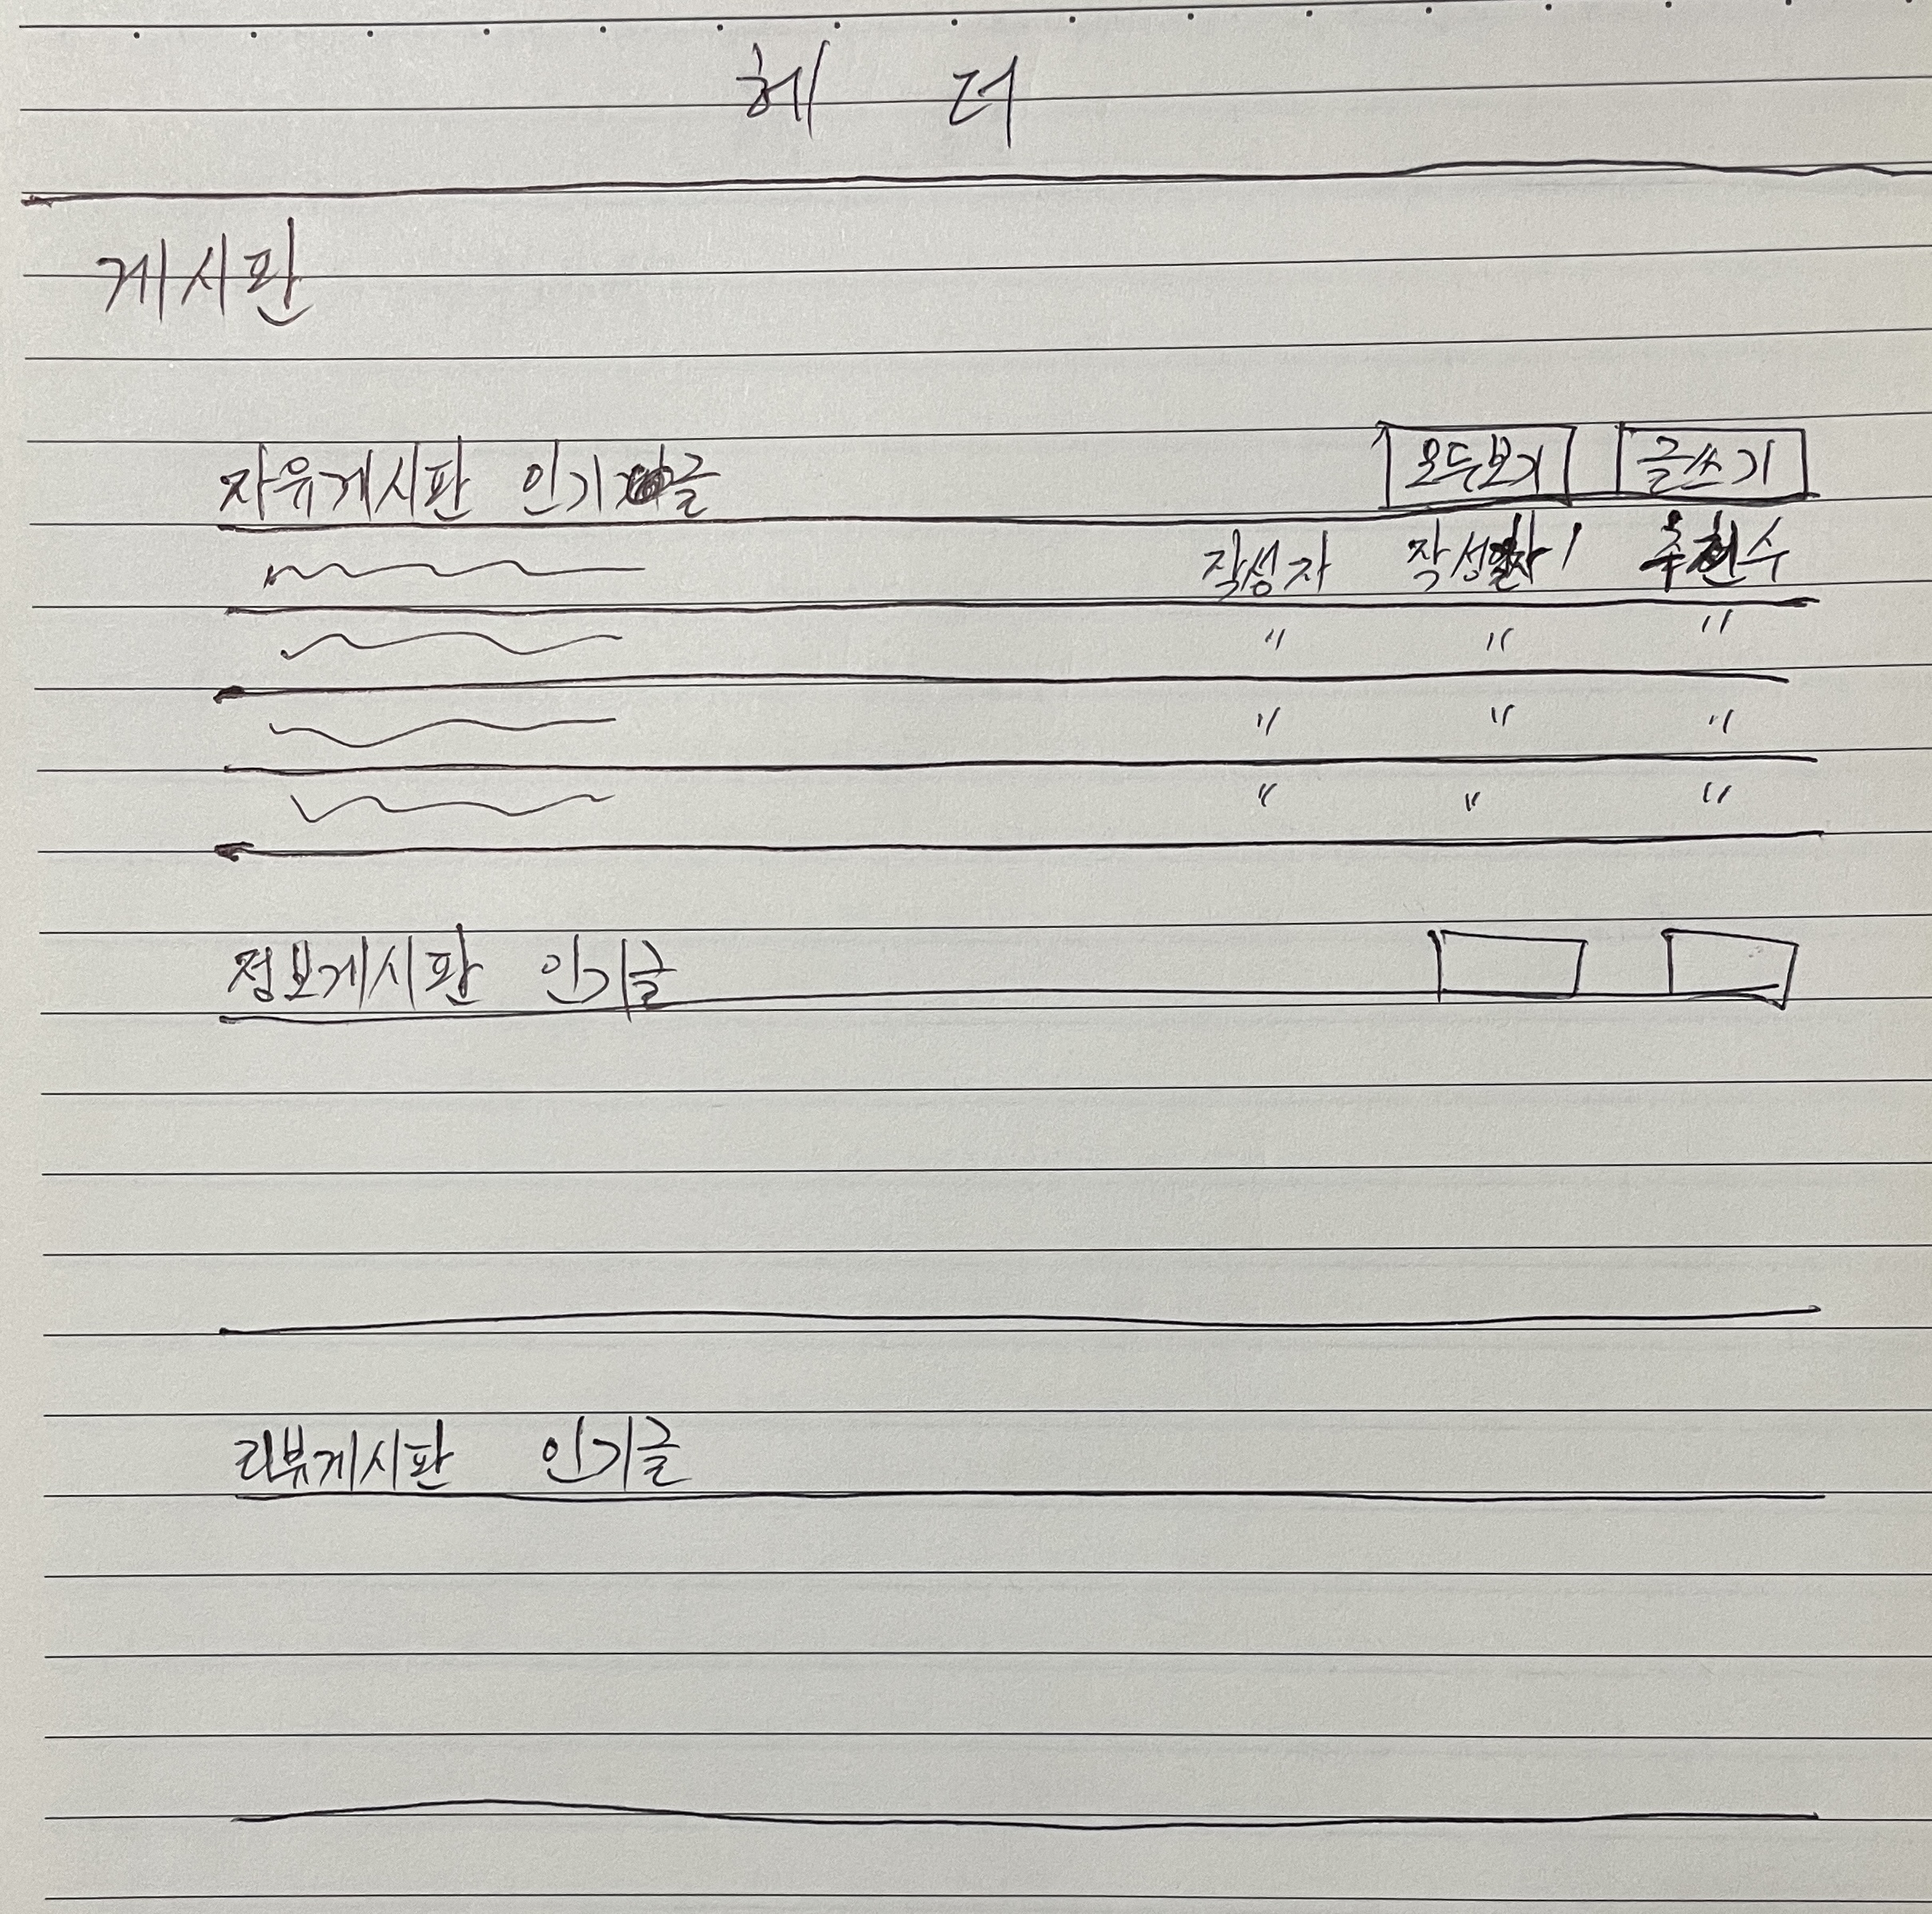 헤 더
게시판
자유게시판 인기글 모두보기 글쓰기
작성자 작성일자 추천수
〃 〃 〃
〃 〃 〃
〃 〃 〃
정보게시판 인기글
리뷰게시판 인기글